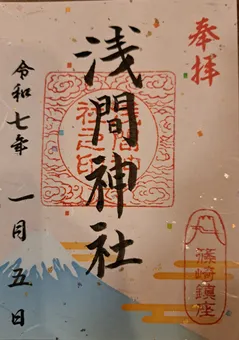 奉拝
浅間神社
令和七年 一月五日
篠崎鎮座